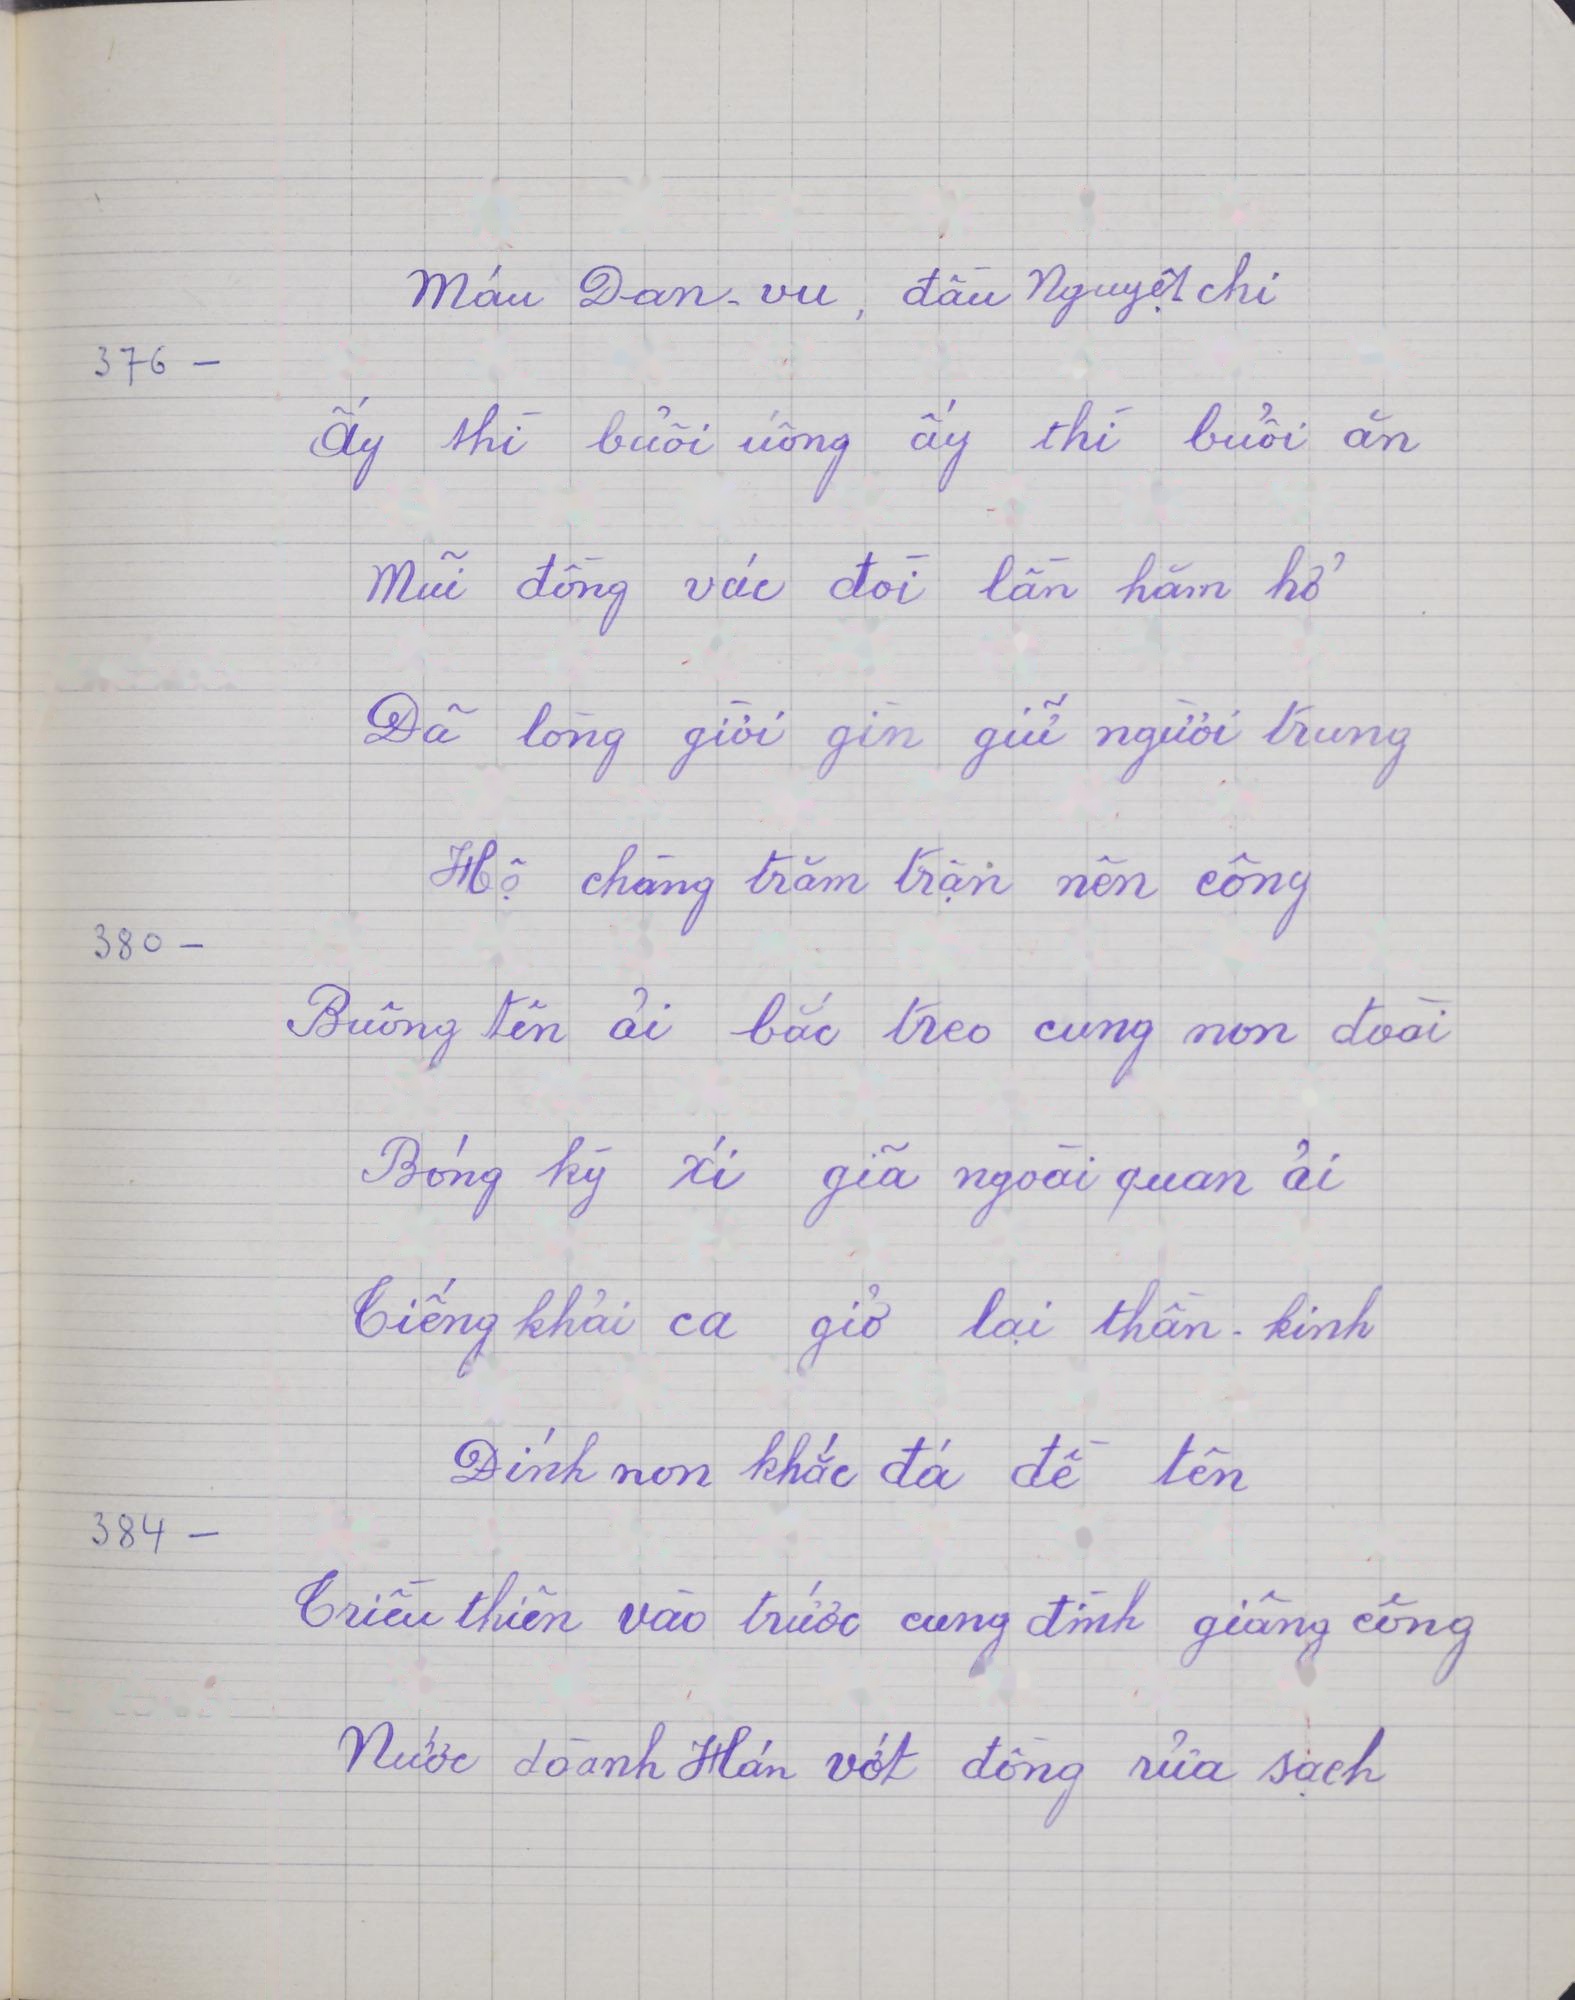 Máu Đan-vu, đầu Nguyệt chi
376 –
Ấy thì buổi uống ấy thì buổi ăn
Mũi đòng vác đòi lần hăm hở
Dã lòng giời gìn giữ người trung
Hộ chàng trăm trận nên công
380 –
Buông tên ải bắc treo cung non đoài
Bóng kỳ xí giã ngoài quan ải
Tiếng khải ca giở lại thần-kinh
Đính non khắc đá đề tên
384 –
Triều thiên vào trước cung đình giâng công
Nước doành Hán vớt đòng rửa sạch